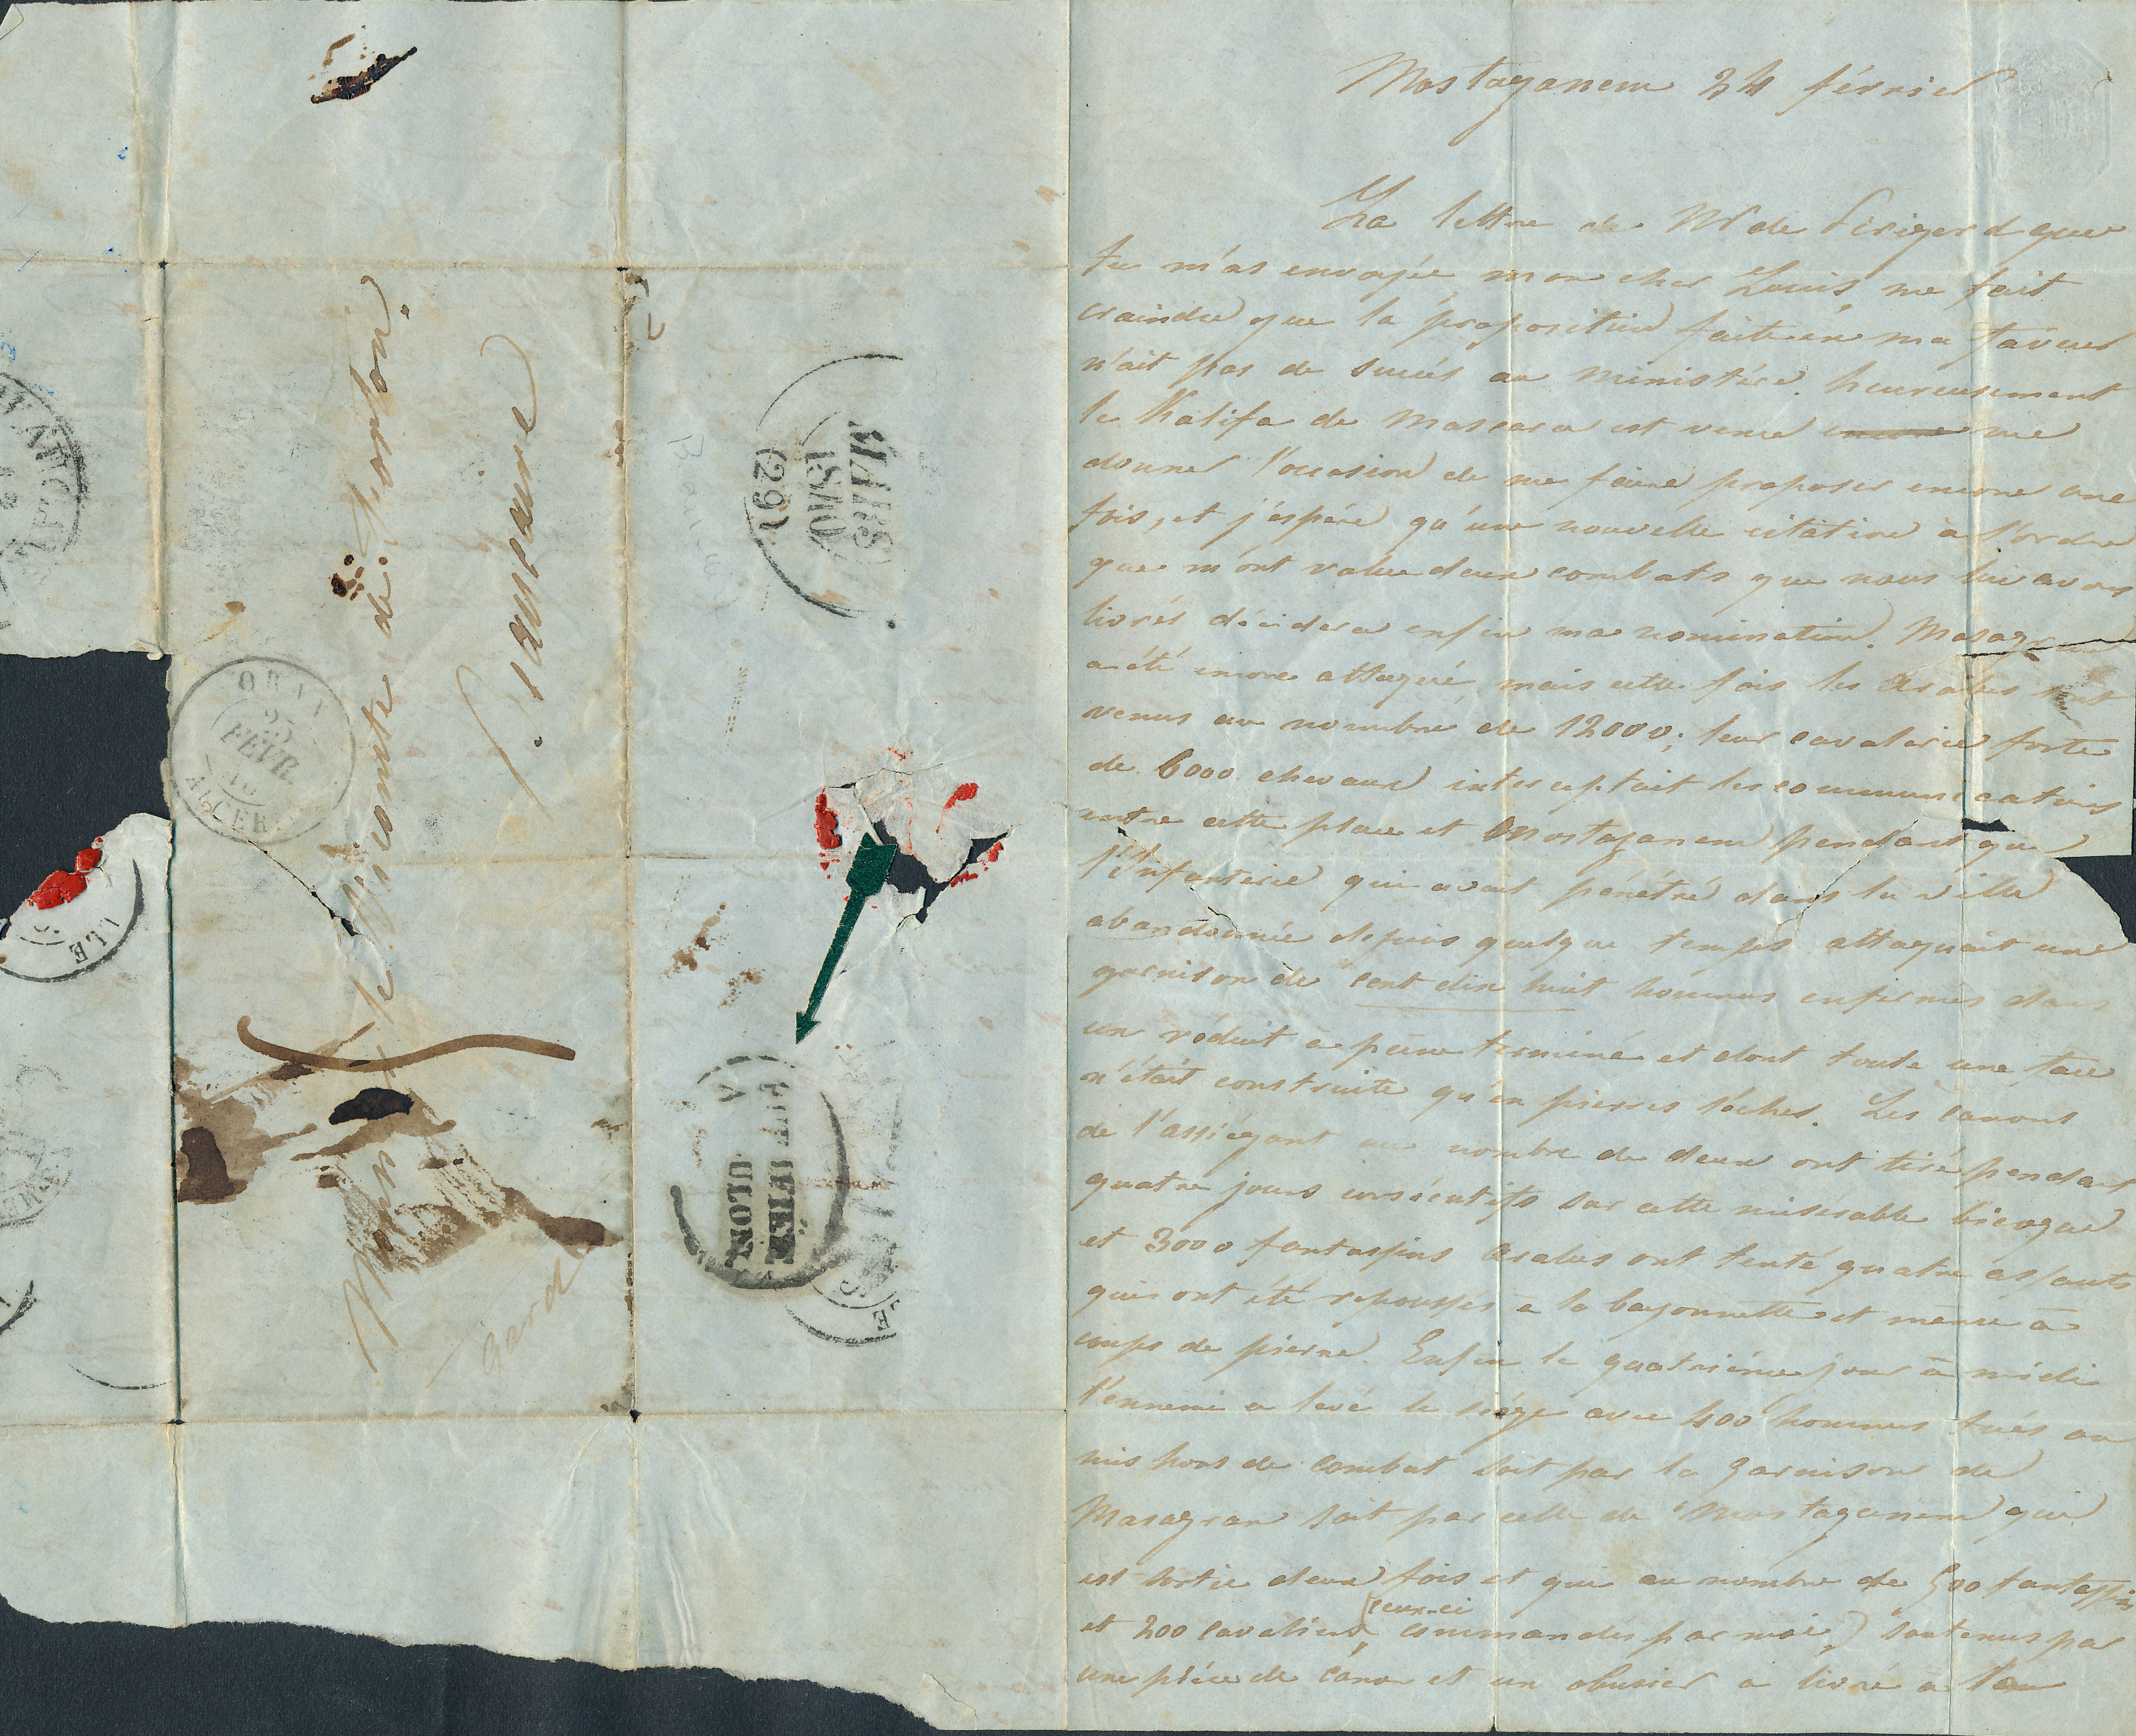 Monsieur
le Vicomte de Forton.
Beaucaire
Gard
ORAN
25
FEVR.
40
ALGERIE
MARS
1840
(29)
PURIFIÉE
ULON
LLE
Mostaganem 24 février
La lettre de Mr de Périgord que
tu m'as envoyée mon cher Louis, me fait
craindre que la proposition faite en ma faveur
n'ait pas de succès au ministère. heureusement
le Kalifa de Mascara est venu encore me
donner l'occasion de me faire proposer encore une
fois, et j'espère qu'une nouvelle citation à l'ordre
que m'ont value deux combats que nous lui avons
livrés décidera enfin ma nomination. Masagran
a été encore attaqué, mais cette fois les Arabes sont
venus au nombre de 12000; leur cavalerie forte
de 6000 chevaux interceptait les communications
entre cette place et Mostaganem pendant que
l'Infanterie qui avait pénétré dans la ville
abandonnée depuis quelque temps attaquait une
garnison de cent dix huit hommes enfermés dans
un réduit à peine terminé et dont toute une face
n'était construite qu'en pierres sèches. Les canons
de l'assiégeant au nombre de deux ont tiré pendant
quatre jours consécutifs sur cette misérable bicoque
et 3000 fantassins arabes ont tenté quatre assauts
qui ont été repoussés à la bayonnette et même à
coups de pierre. Enfin le quatrième jour à midi
l'ennemi a levé le siège avec 400 hommes tués ou
mis hors de combat soit par la garnison de
Masagran soit par celle de Mostaganem qui
est sortie deux fois et qui au nombre de 500 fantassins
et 200 cavaliers, (ceux-ci commandés par moi) soutenus par
une pièce de canon et un obusier a livré à